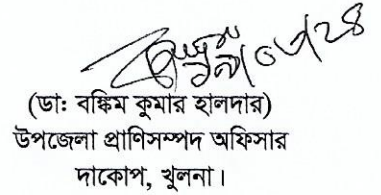 (ডা: বঙ্কিম কুমার হালদার)
উপজেলা প্রাণিসম্পদ অফিসার
দাকোপ, খুলনা।